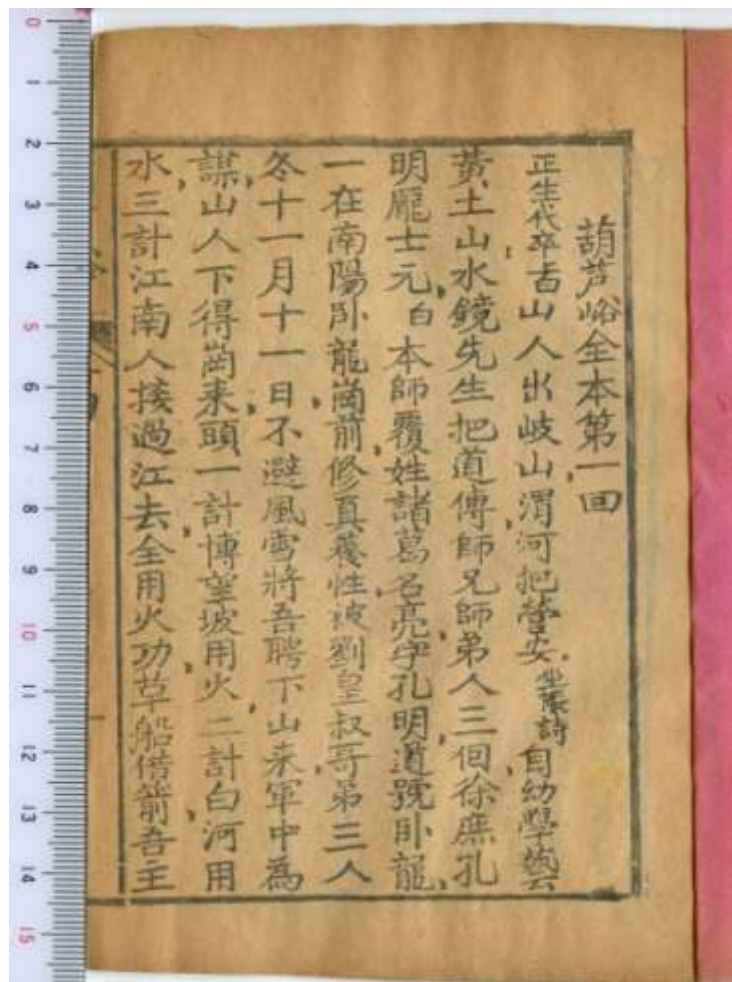 葫芦峪全本第一回
正生代卒吉山人出岐山渭河把營安坐帳詩自幼學藝雲
黃土山水鏡先生把道傳師兄師弟人三個徐庶孔
明龐士元白本師覆姓諸葛名亮字孔明道號卧龍
一在南陽卧龍崗前修真養性被劉皇叔哥弟三人
冬十一月十一日不避風雪將吾聘下山来軍中為
謀山人下得崗来頭一計博望坡用火二計白河用
水三計江南人接過江去全用火功草船借箭吾主